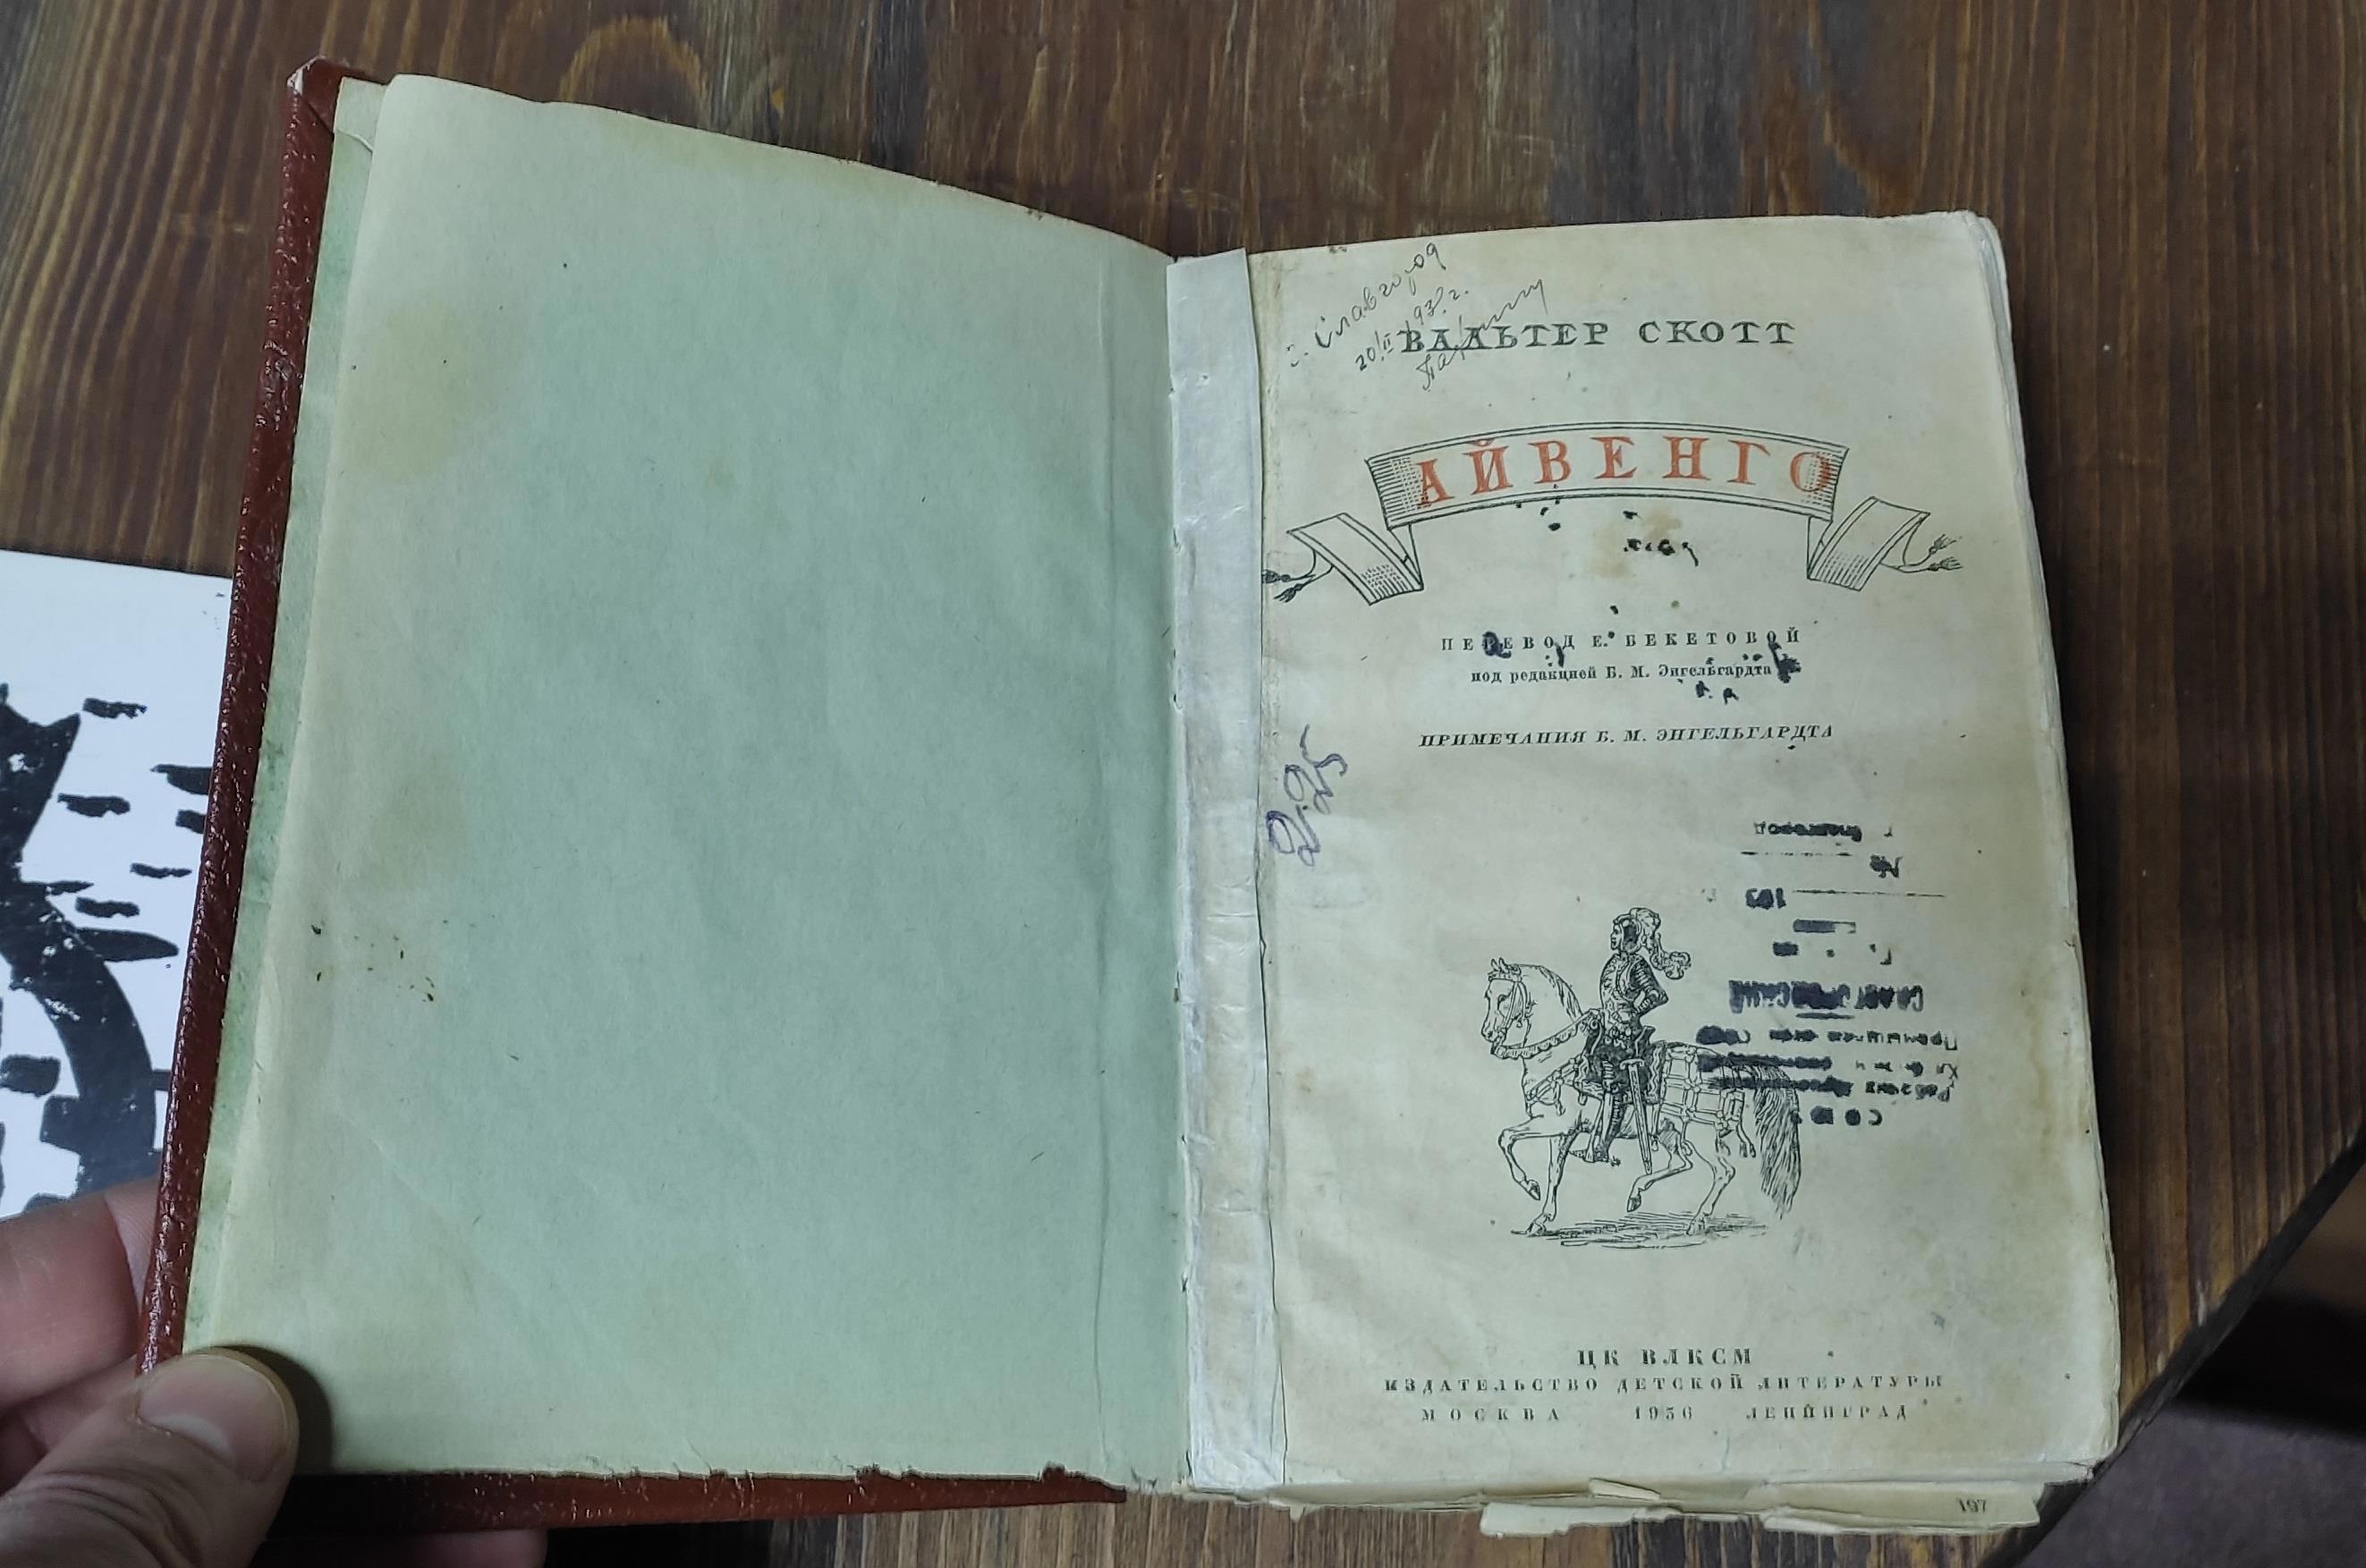 Славгород
20/II 193 г.
ВАЛЬТЕР СКОТТ
АЙВЕНГО
ПЕРЕВОД Е. БЕКЕТОВОЙ
под редакцией Б. М. Энгельгардта
ПРИМЕЧАНИЯ Б. М. ЭНГЕЛЬГАРДТА
2.25
№
193
ЦК ВЛКСМ
ИЗДАТЕЛЬСТВО ДЕТСКОЙ ЛИТЕРАТУРЫ
МОСКВА 1936 ЛЕНИНГРАД
197